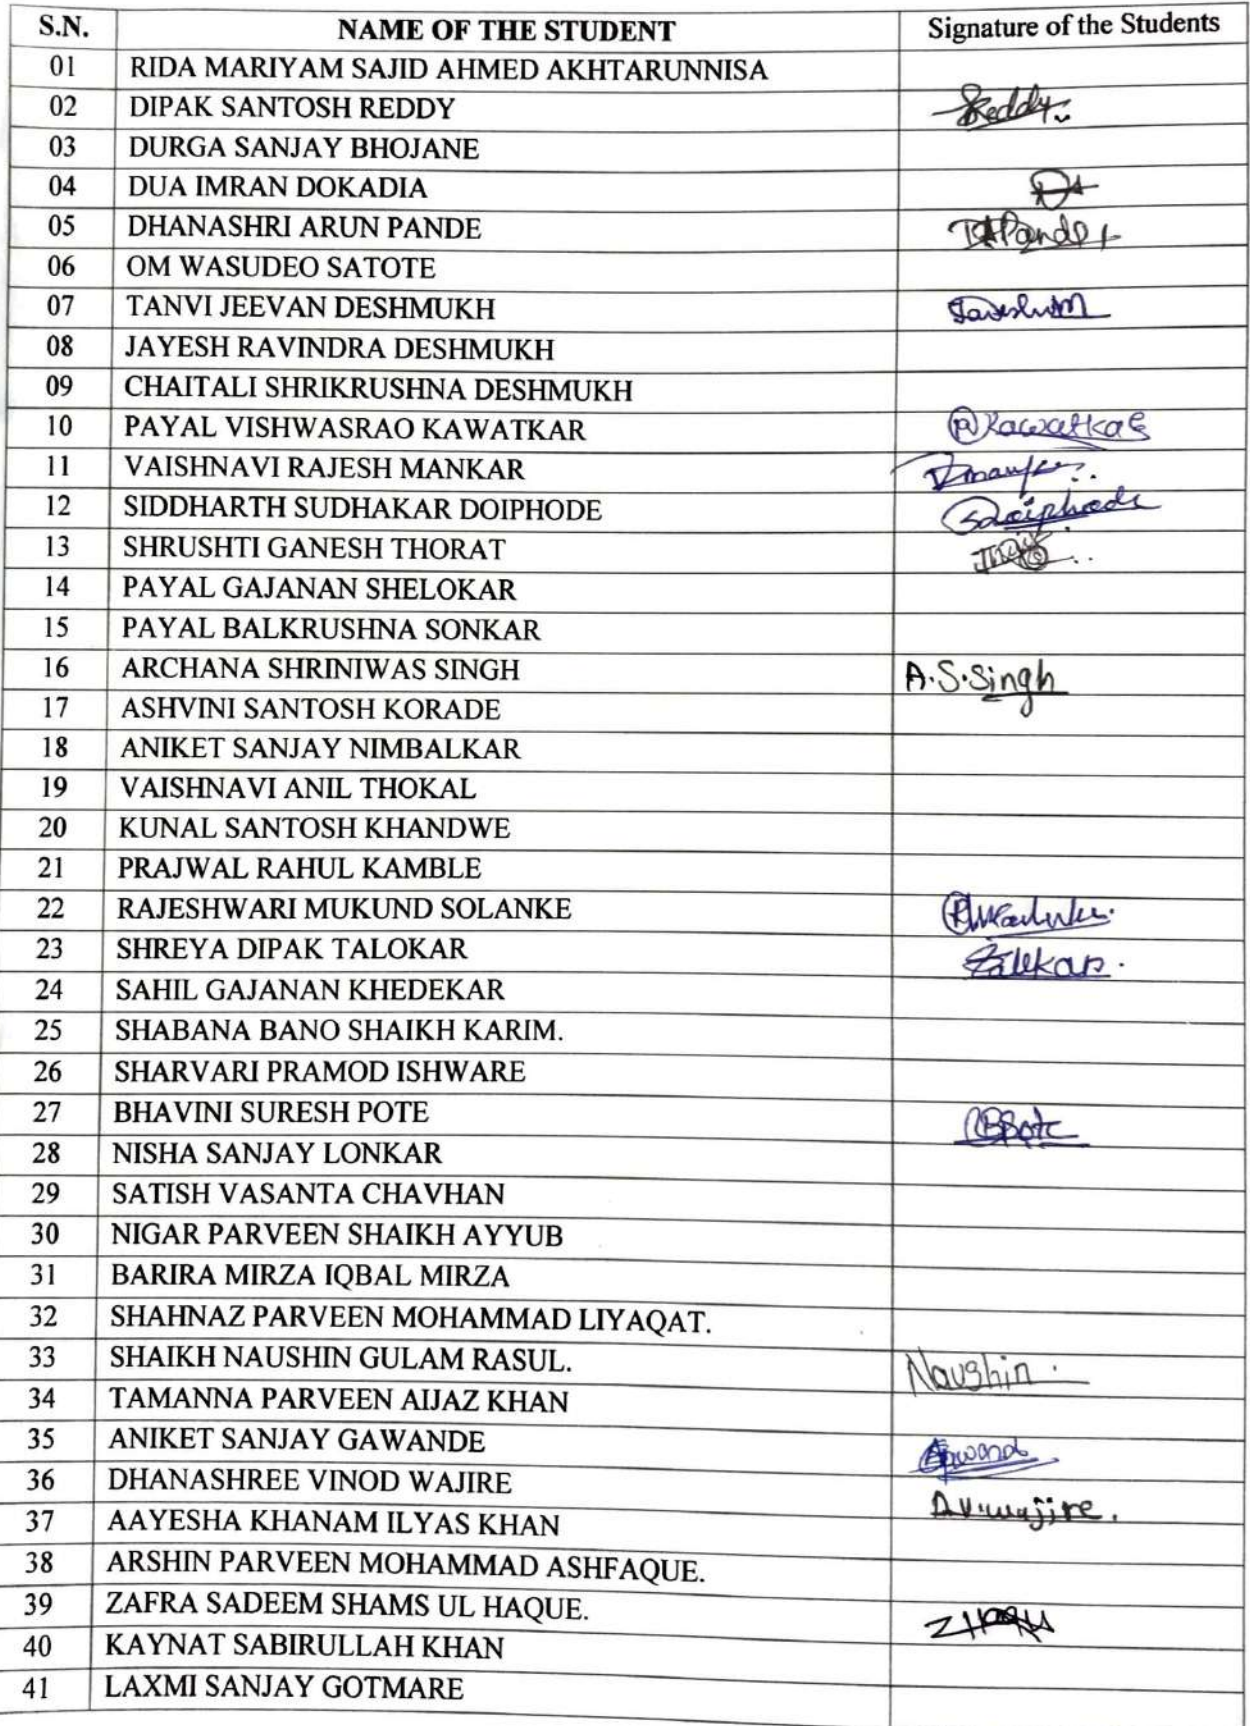 S.N. NAME OF THE STUDENT Signature of the Students
01 RIDA MARIYAM SAJID AHMED AKHTARUNNISA
02 DIPAK SANTOSH REDDY Reddy
03 DURGA SANJAY BHOJANE
04 DUA IMRAN DOKADIA
05 DHANASHRI ARUN PANDE DAPande
06 OM WASUDEO SATOTE
07 TANVI JEEVAN DESHMUKH
08 JAYESH RAVINDRA DESHMUKH
09 CHAITALI SHRIKRUSHNA DESHMUKH
10 PAYAL VISHWASRAO KAWATKAR PKawatkar
11 VAISHNAVI RAJESH MANKAR
12 SIDDHARTH SUDHAKAR DOIPHODE SDoiphode
13 SHRUSHTI GANESH THORAT
14 PAYAL GAJANAN SHELOKAR
15 PAYAL BALKRUSHNA SONKAR
16 ARCHANA SHRINIWAS SINGH A.S.Singh
17 ASHVINI SANTOSH KORADE
18 ANIKET SANJAY NIMBALKAR
19 VAISHNAVI ANIL THOKAL
20 KUNAL SANTOSH KHANDWE
21 PRAJWAL RAHUL KAMBLE
22 RAJESHWARI MUKUND SOLANKE
23 SHREYA DIPAK TALOKAR
24 SAHIL GAJANAN KHEDEKAR
25 SHABANA BANO SHAIKH KARIM.
26 SHARVARI PRAMOD ISHWARE
27 BHAVINI SURESH POTE BSPote
28 NISHA SANJAY LONKAR
29 SATISH VASANTA CHAVHAN
30 NIGAR PARVEEN SHAIKH AYYUB
31 BARIRA MIRZA IQBAL MIRZA
32 SHAHNAZ PARVEEN MOHAMMAD LIYAQAT.
33 SHAIKH NAUSHIN GULAM RASUL. Naushin
34 TAMANNA PARVEEN AIJAZ KHAN
35 ANIKET SANJAY GAWANDE
36 DHANASHREE VINOD WAJIRE D.V.Wajire.
37 AAYESHA KHANAM ILYAS KHAN
38 ARSHIN PARVEEN MOHAMMAD ASHFAQUE.
39 ZAFRA SADEEM SHAMS UL HAQUE.
40 KAYNAT SABIRULLAH KHAN
41 LAXMI SANJAY GOTMARE